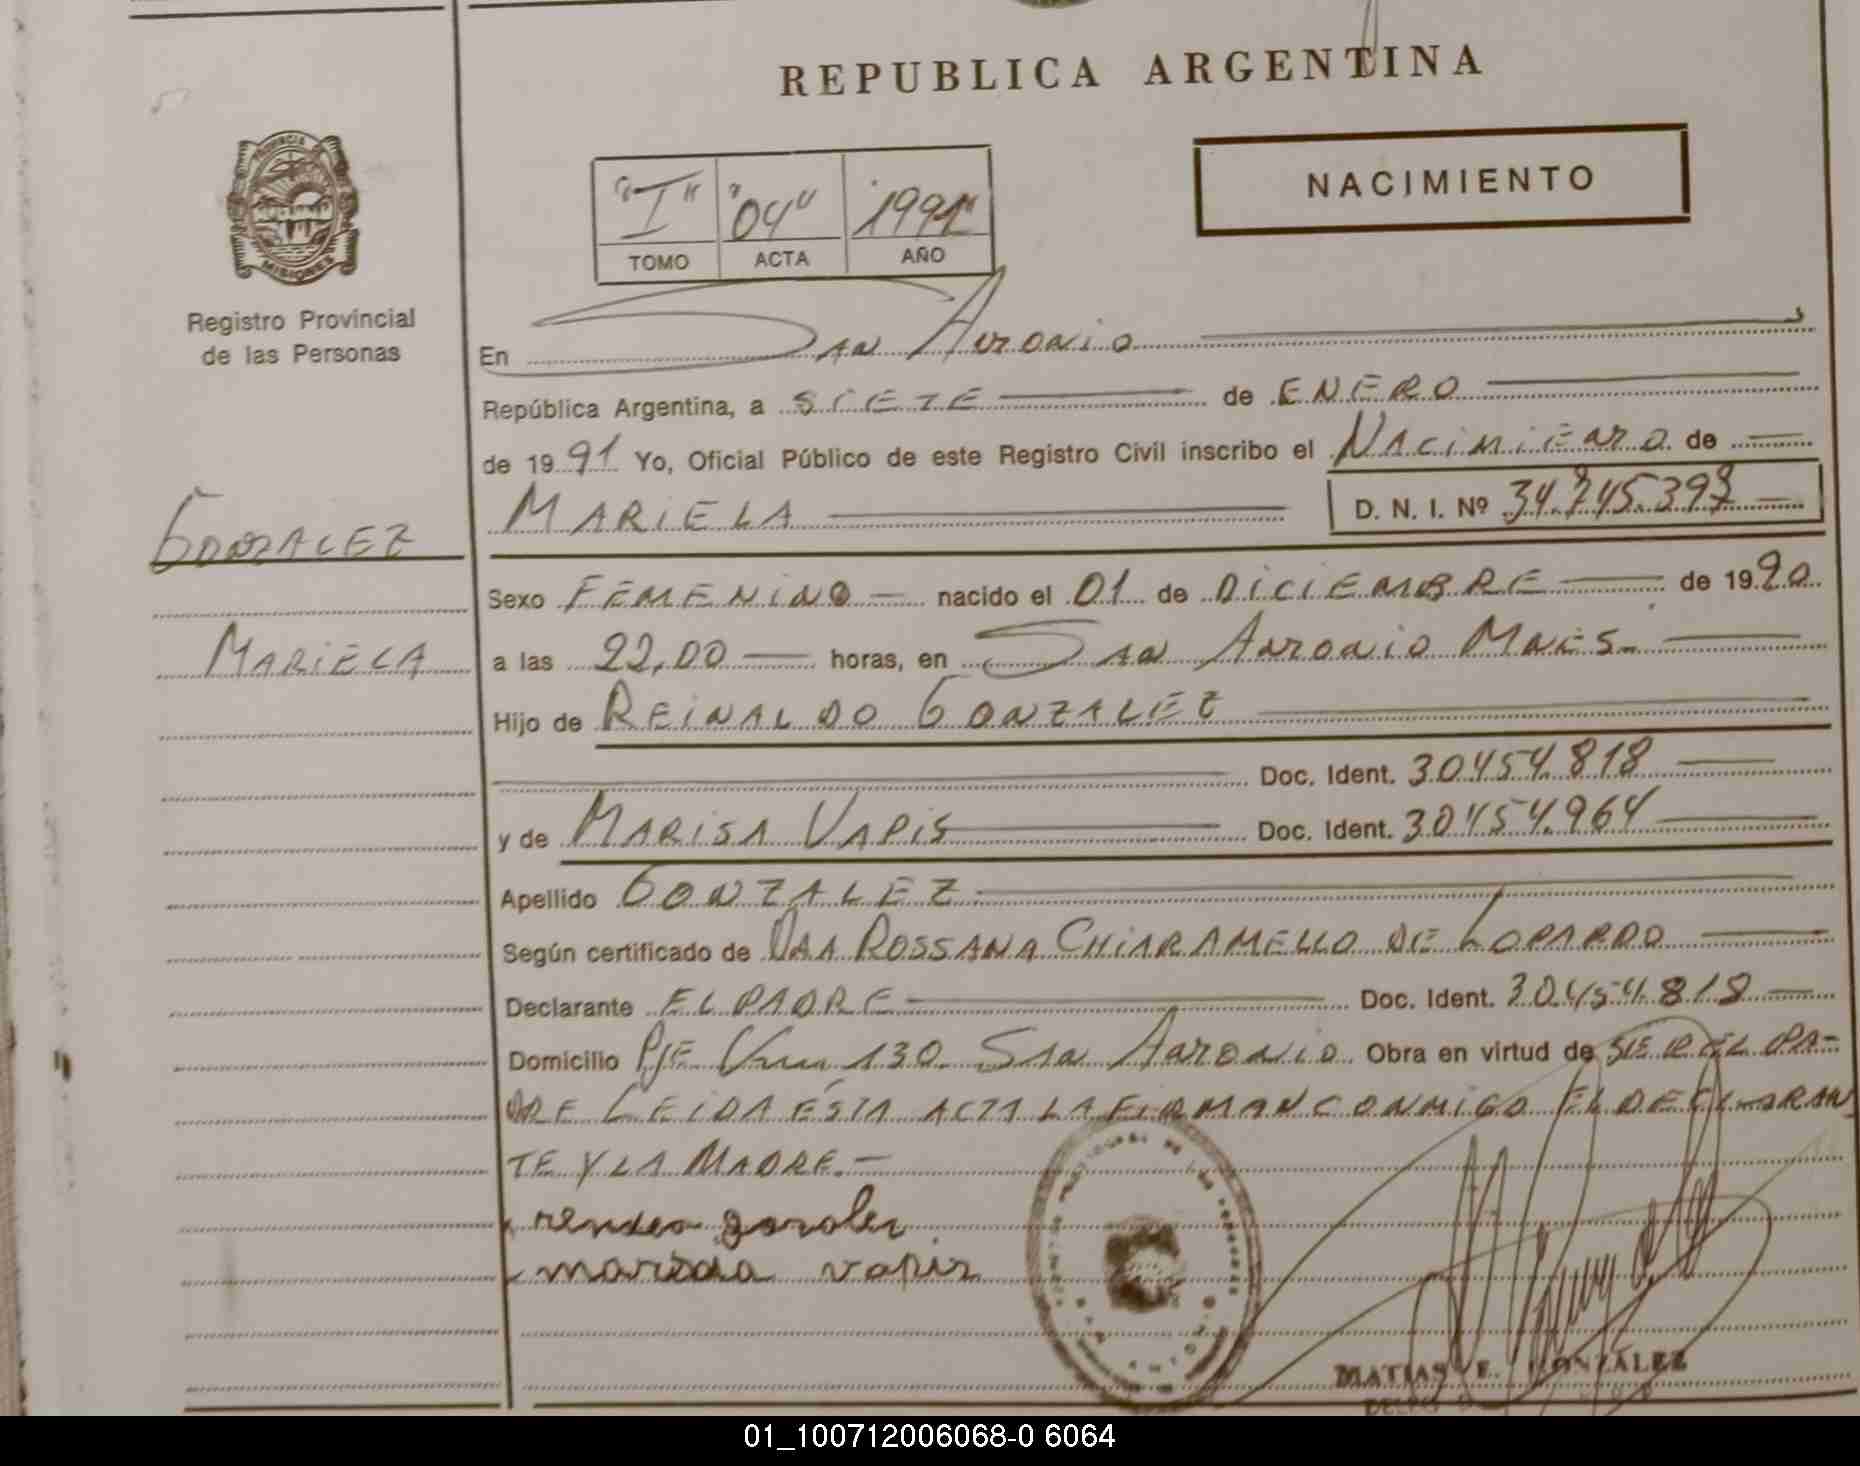 REPUBLICA ARGENTINA
NACIMIENTO
"I" "04" "1991"
TOMO ACTA AÑO
PROVINCIA
MISIONES
Registro Provincial
de las Personas
GONZALEZ
MARIELA
En SAN ANTONIO
República Argentina, a SIETE de ENERO
de 1991 Yo, Oficial Público de este Registro Civil inscribo el NACIMIENTO de
MARIELA D. N. I. Nº 34.745.397
Sexo FEMENINO nacido el 01 de DICIEMBRE de 1990
a las 22,00 horas, en SAN ANTONIO MNES.
Hijo de REINALDO GONZALEZ
Doc. Ident. 30.454.818
y de MARISA VAPIS Doc. Ident. 30.454.964
Apellido GONZALEZ
Según certificado de DRA ROSSANA CHIARAMELLO DE LOPARDO
Declarante EL PADRE Doc. Ident. 30.454.818
Domicilio PJE 130 SAN ANTONIO Obra en virtud de SER EL PA-
DRE LEIDA ESTA ACTA LA FIRMAN CONMIGO EL DECLARAN
TE Y LA MADRE.-
vapis
MATIAS E. GONZALEZ
01_100712006068-0 6064